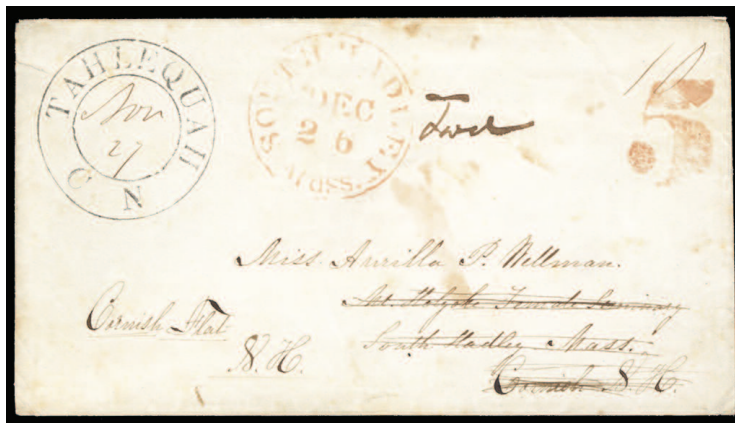 TAHLEQUAH
C N
Nov
27
SOUTH HADLEY
DEC
26
Mass.
Forwd
10
5
Miss Aurilla P. Wellman.
Mt Holyoke Female Seminary
South Hadley Mass.
Cornish N. H.
Cornish Flat
N. H.